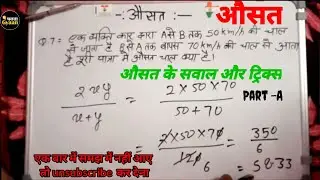 -: औसत :-
औसत
Q.7:- एक व्यक्ति कार द्वारा A से B तक 50 km/h की चाल
से जाता है B से A तक वापस 70 km/h की चाल से आता
है पूरी यात्रा में औसत चाल क्या है।
औसत के सवाल और ट्रिक्स
PART -A
2xy / x+y = 2×50×70 / 50+70
2×50×70 / 120 6 = 350 / 6
= 58.33
एक बार में समझ में नहीं आए
तो unsubscribe कर देना